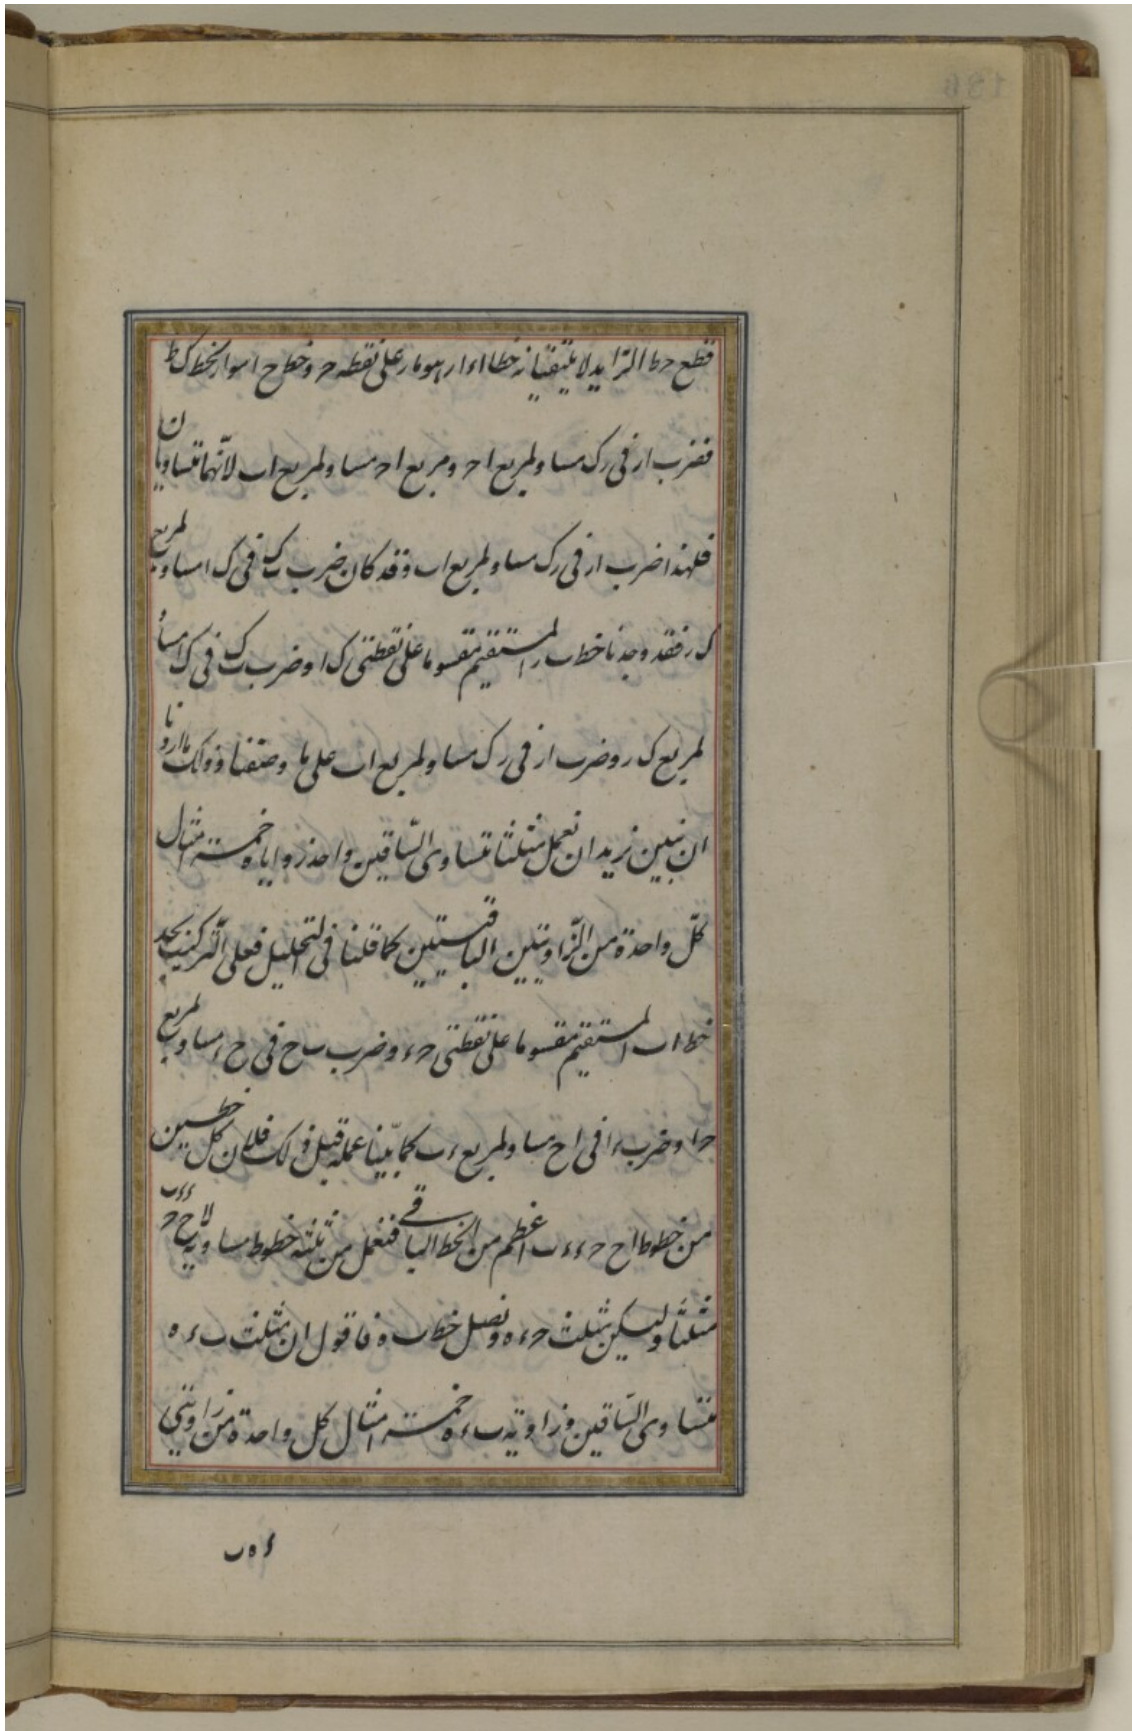 قطع حط الزايد لا يلتقيانه خطا اء ار وهو مار على نقطه ح وخط ح ا مواز لخط ك ط
فضرب ار فى رك مساو لمربع اح ومربع اح مساو لمربع اب لانهما متساويان
فلهذا ضرب ار فى رك مساو لمربع اب وقد كان ضرب ب ك فى ك ا مساو لمربع
ك ر فقد وجدنا خط ب ر المستقيم مقسوما على نقطتى ك ا وضرب ب ك فى ك ا مساو
لمربع ك ر وضرب ار فى رك مساو لمربع اب على ما وصفنا وذلك ما اردنا
ان نبين نريد ان نعمل مثلثا متساوى الساقين واحد زواياه خمسة امثال
كل واحدة من الزاويتين الباقيتين كما قلنا فى التحليل فعلى التركيب نجد
خط اب المستقيم مقسوما على نقطتى ح ء وضرب ب ح فى ح ء مساو لمربع
ح ا وضرب ء ا فى اح مساو لمربع ء ب كما بينا عمله قبل ذلك فلان كل خطين
من خطوط اح ح ء ء ب اعظم من الخط الباقى فنعمل من ثلثه خطوط مساوية لاح ح ء ء ب
مثلثا وليكن مثلث ح ء ه ونصل خط ب ه فاقول ان مثلث ب ء ه
متساوى الساقين وزاوية ب ء ه خمسة امثال كل واحدة من زاويتى
ء ه ب